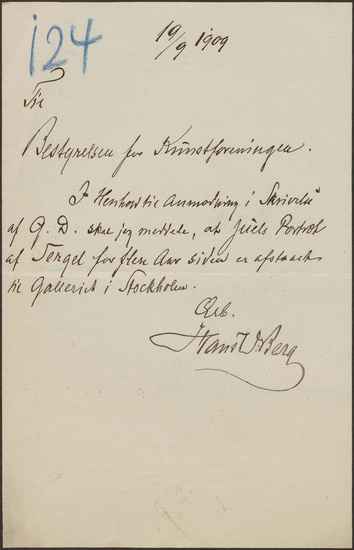 124
19/9 1909
Til
Bestyrelsen for Kunstforeningen.
I Henhold til Anmodning i Skrivelse
af G. D. skal jeg meddele, at Juels Portræt
af Sergel for flere Aar siden er afstaaet
til Galleriet i Stockholm.
Ærb.
Hans Berg